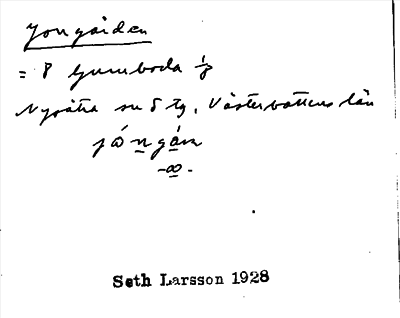 Jongården
= 8 Gumboda 1/8
Nysätra sn 5 tg, Västerbottens län
Seth Larsson 1928